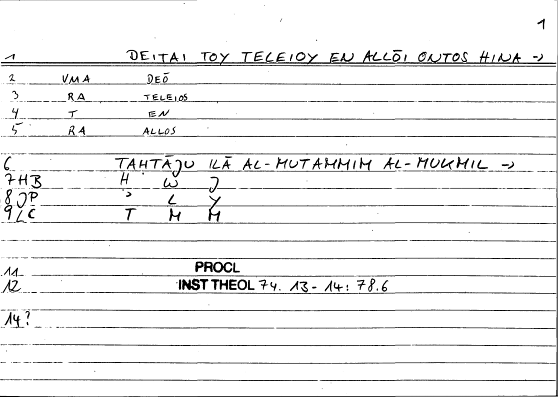 1
1 DEITAI TOY TELEIOY EN ALLŌI ONTOS HINA →
2 VMA DEŌ
3 RA TELEIOS
4 T EN
5 RA ALLOS
6 TAHTĀJU ILĀ AL-MUTAMMIM AL-MUKMIL →
7 HB H W J
8 JP ' L Y
9 LC T M M
11
12 PROCL
INST THEOL 74. 13-14: 78.6
14?